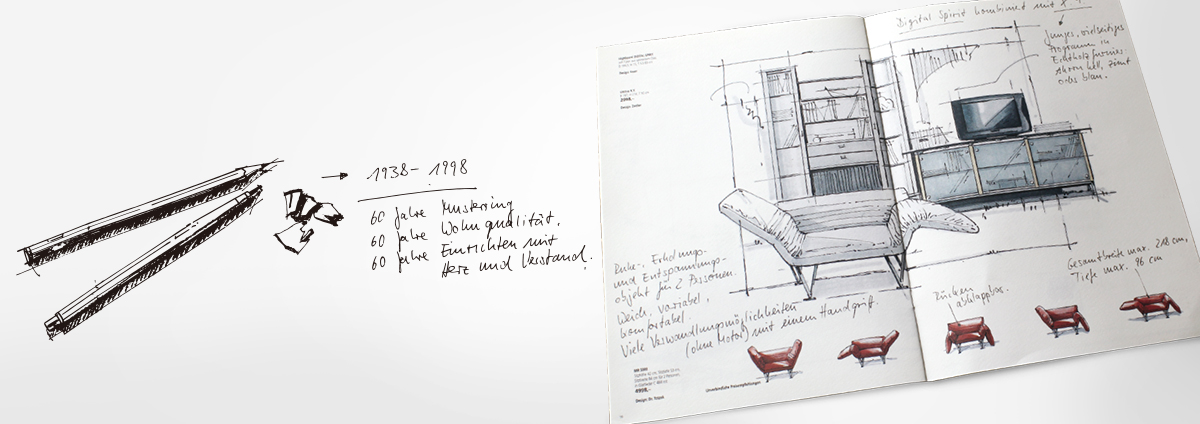 1938 – 1998
60 Jahre Musterring
60 Jahre Wohnqualität,
60 Jahre Einrichten mit
Herz und Verstand.
Digital Spirit kombiniert mit
Junges, vielseitiges
Programm in
Echtholzfurnier
Ahorn hell, Zimt
oder blau.
Ruhe-, Erholungs-
und Entspannungs-
objekt für 2 Personen.
Weich, variabel,
komfortabel.
Viele Verwandlungsmöglichkeiten
(ohne Motor) mit einem Handgriff.
Rücken
abklappbar.
Gesamtbreite max. 218 cm,
Tiefe max. 96 cm
2098,-
4998,-
Unverbindliche Preisempfehlungen